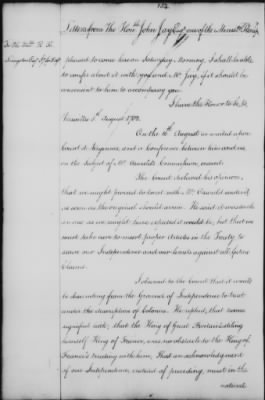 132.
Letters from The Honble John Jay Esqr one of the
To the Honble R. R.
Livingston Esqr
pleased to come here on Saturday Morning, I shall be able
to confer about it with you and Mr Jay, if it should be
convenient to him to accompany you.
I have the Honor to be &c
Versailles 5th August 1782.
On the 10th August we waited upon
Count de Vergennes, and a Conference between him and us
on the Subject of Mr Oswald's Commission, ensued.
The Count declared his opinion,
that we might proceed to treat with Mr Oswald under it
as soon as the original should arrive. He said it was such
an one as we might have expected it would be, but that we
must take care to insert proper Articles in the Treaty, to
secure our Independence and our limits against all future
Claims.
I observed to the Count that it would
be descending from the Ground of Independence to treat
under the description of Colonies. He replied, that names
signified little; that the King of Great Britain styling
himself King of France, was no obstacle to the King of
France's treating with him; That an acknowledgment
of our Independence, instead of preceding, must in the
natural